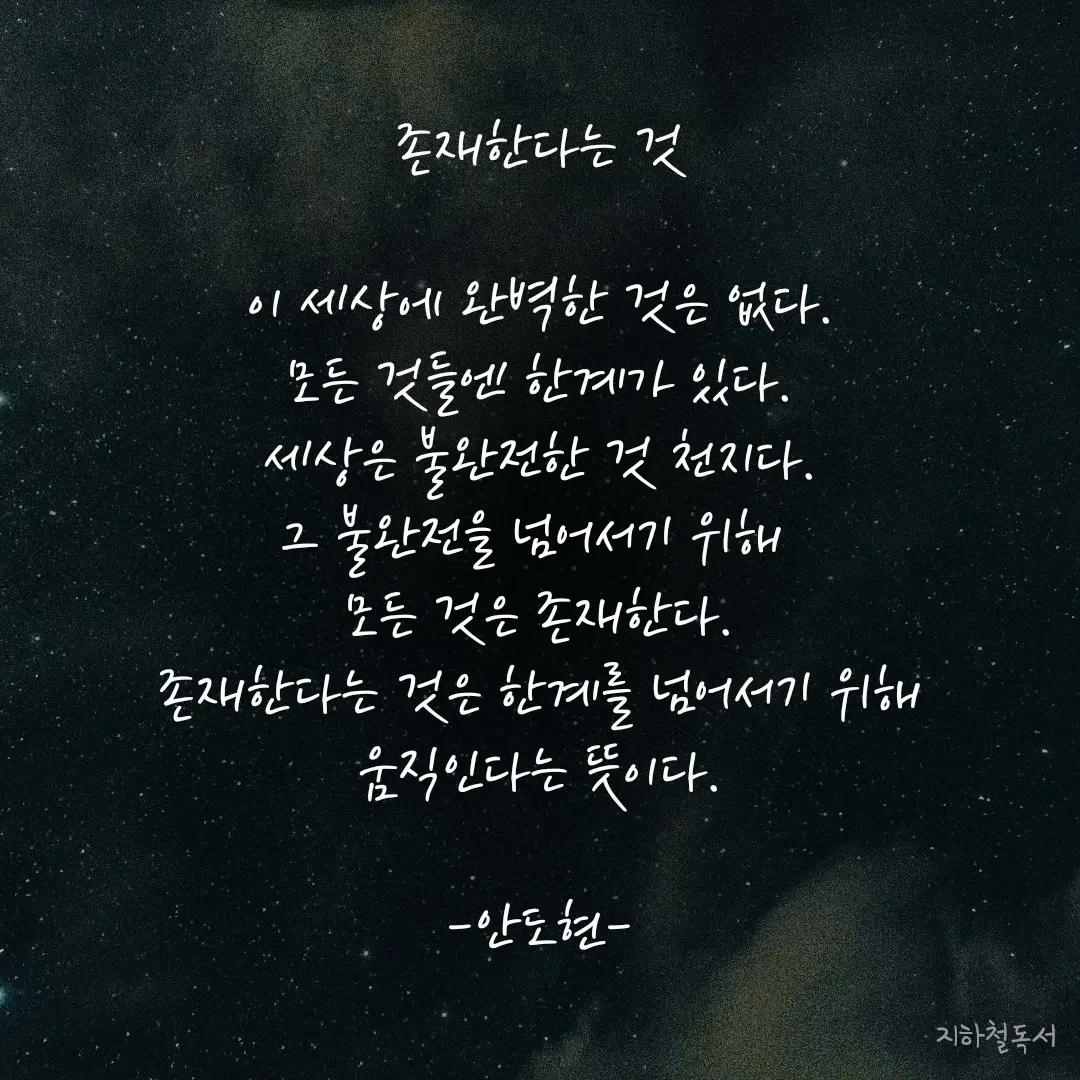 존재한다는 것
이 세상에 완벽한 것은 없다.
모든 것들엔 한계가 있다.
세상은 불완전한 것 천지다.
그 불완전을 넘어서기 위해
모든 것은 존재한다.
존재한다는 것은 한계를 넘어서기 위해
움직인다는 뜻이다.
-안도현-
지하철독서